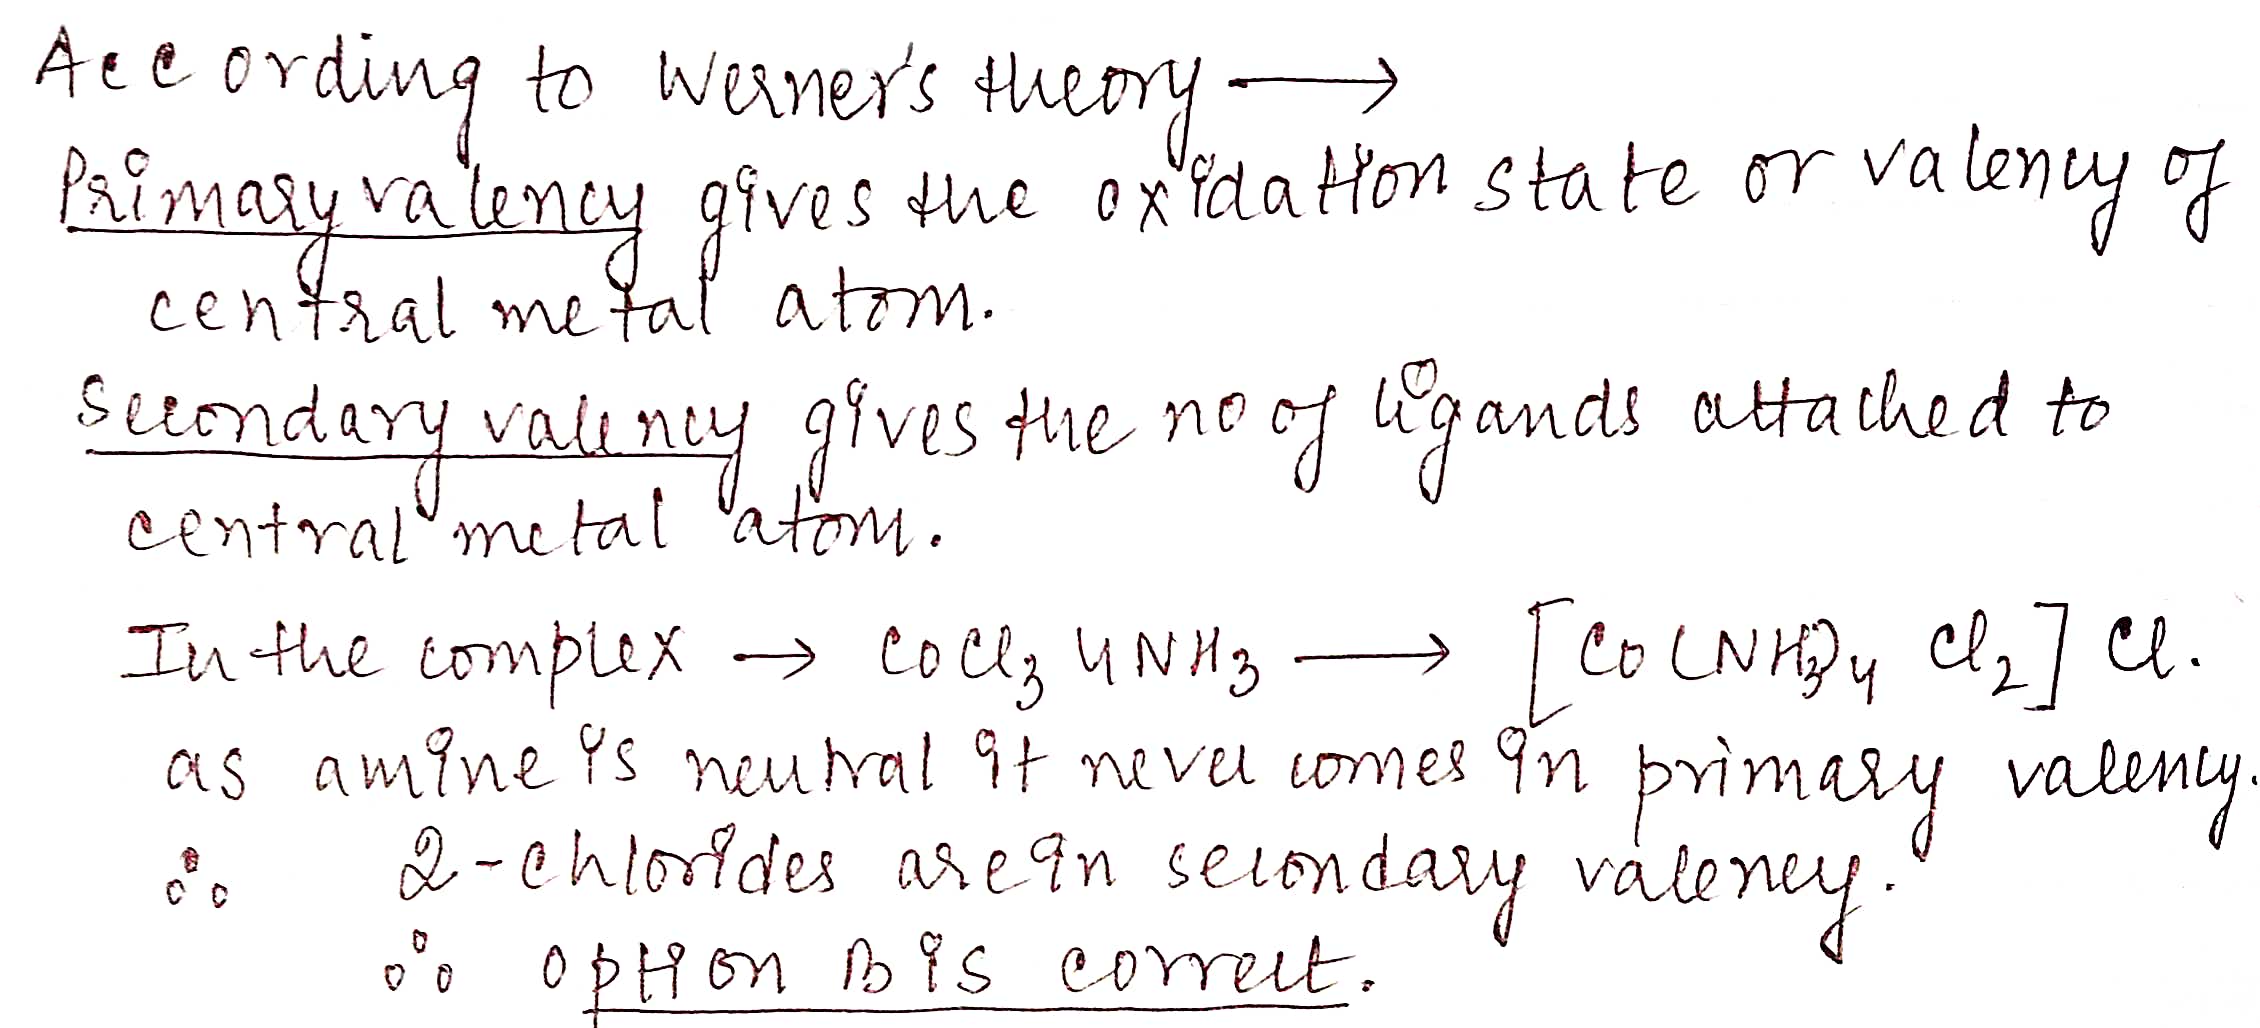 According to Werner's theory →
Primary valency gives the oxidation state or valency of
central metal atom.
Secondary valency gives the no of ligands attached to
central metal atom.
In the complex → CoCl₃ 4NH₃ → [Co(NH₃)₄ Cl₂] Cl.
as amine is neutral it never comes in primary valency.
∴ 2-chlorides are in secondary valency.
∴ option B is correct.